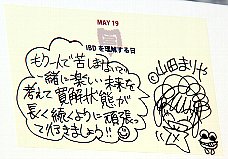 MAY 19
IBDを理解する日
もう一人で苦しまないで
一緒に楽しい未来を
考えて寛解状態が
長く続くように頑張っ
て行きましょう!!
©山田まりや